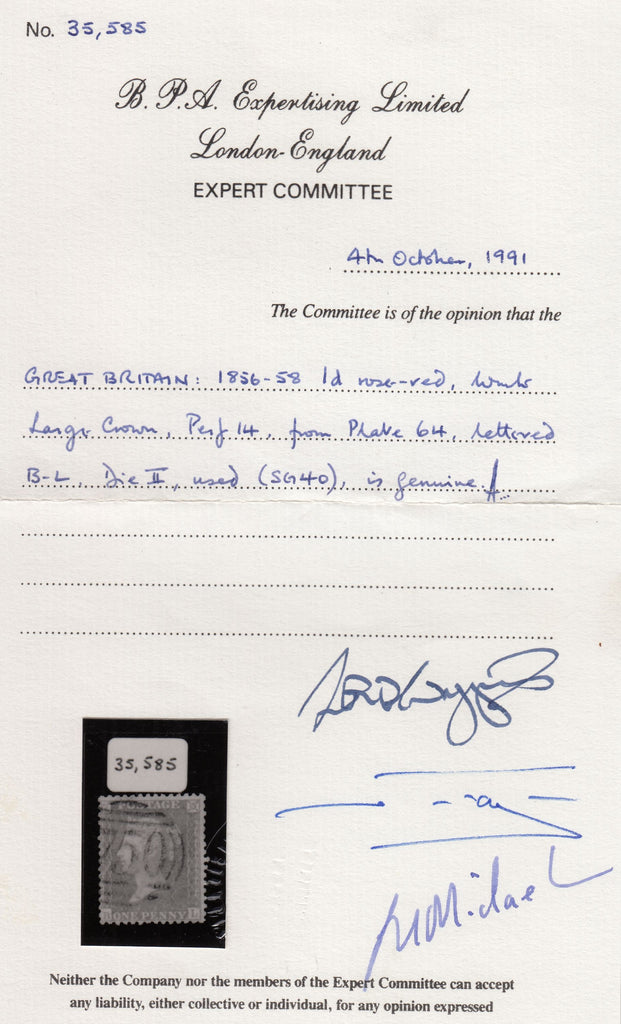 No. 35,585
B.P.A. Expertising Limited
London-England
EXPERT COMMITTEE
4th October, 1991
The Committee is of the opinion that the
GREAT BRITAIN: 1856-58 1d rose-red, wmk
Large Crown, Perf 14, from Plate 64, lettered
B-L, Die II, used (SG40), is genuine.
35,585
POSTAGE
ONE PENNY L
Michael
Neither the Company nor the members of the Expert Committee can accept
any liability, either collective or individual, for any opinion expressed